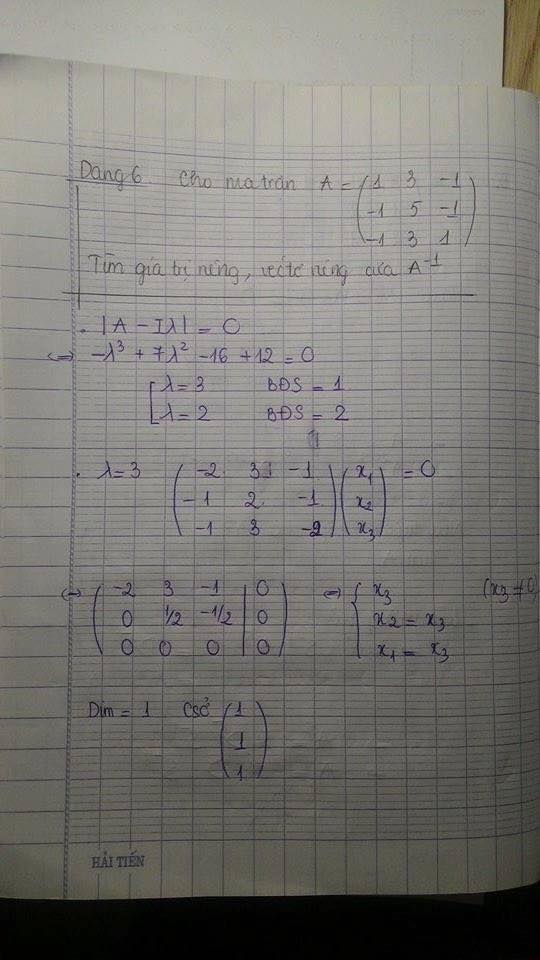 Dạng 6 Cho ma trận A = ( 1 3 -1
-1 5 -1
-1 3 1 )
Tìm giá trị riêng, véctơ riêng của A⁻¹
. |A - Iλ| = 0
⇔ -λ³ + 7λ² - 16 + 12 = 0
[ λ = 3 BĐS = 1
λ = 2 BĐS = 2
. λ = 3 ( -2 3 -1 ) ( x₁ ) = 0
-1 2 -1 x₂
-1 3 -2 x₃
⇔ ( -2 3 -1 | 0 ) ⇔ { x₃ (x₃ ≠ 0)
0 1/2 -1/2 | 0 x₂ = x₃
0 0 0 | 0 x₁ = x₃
Dim = 1 Csở ( 1
1
1 )
HẢI TIẾN